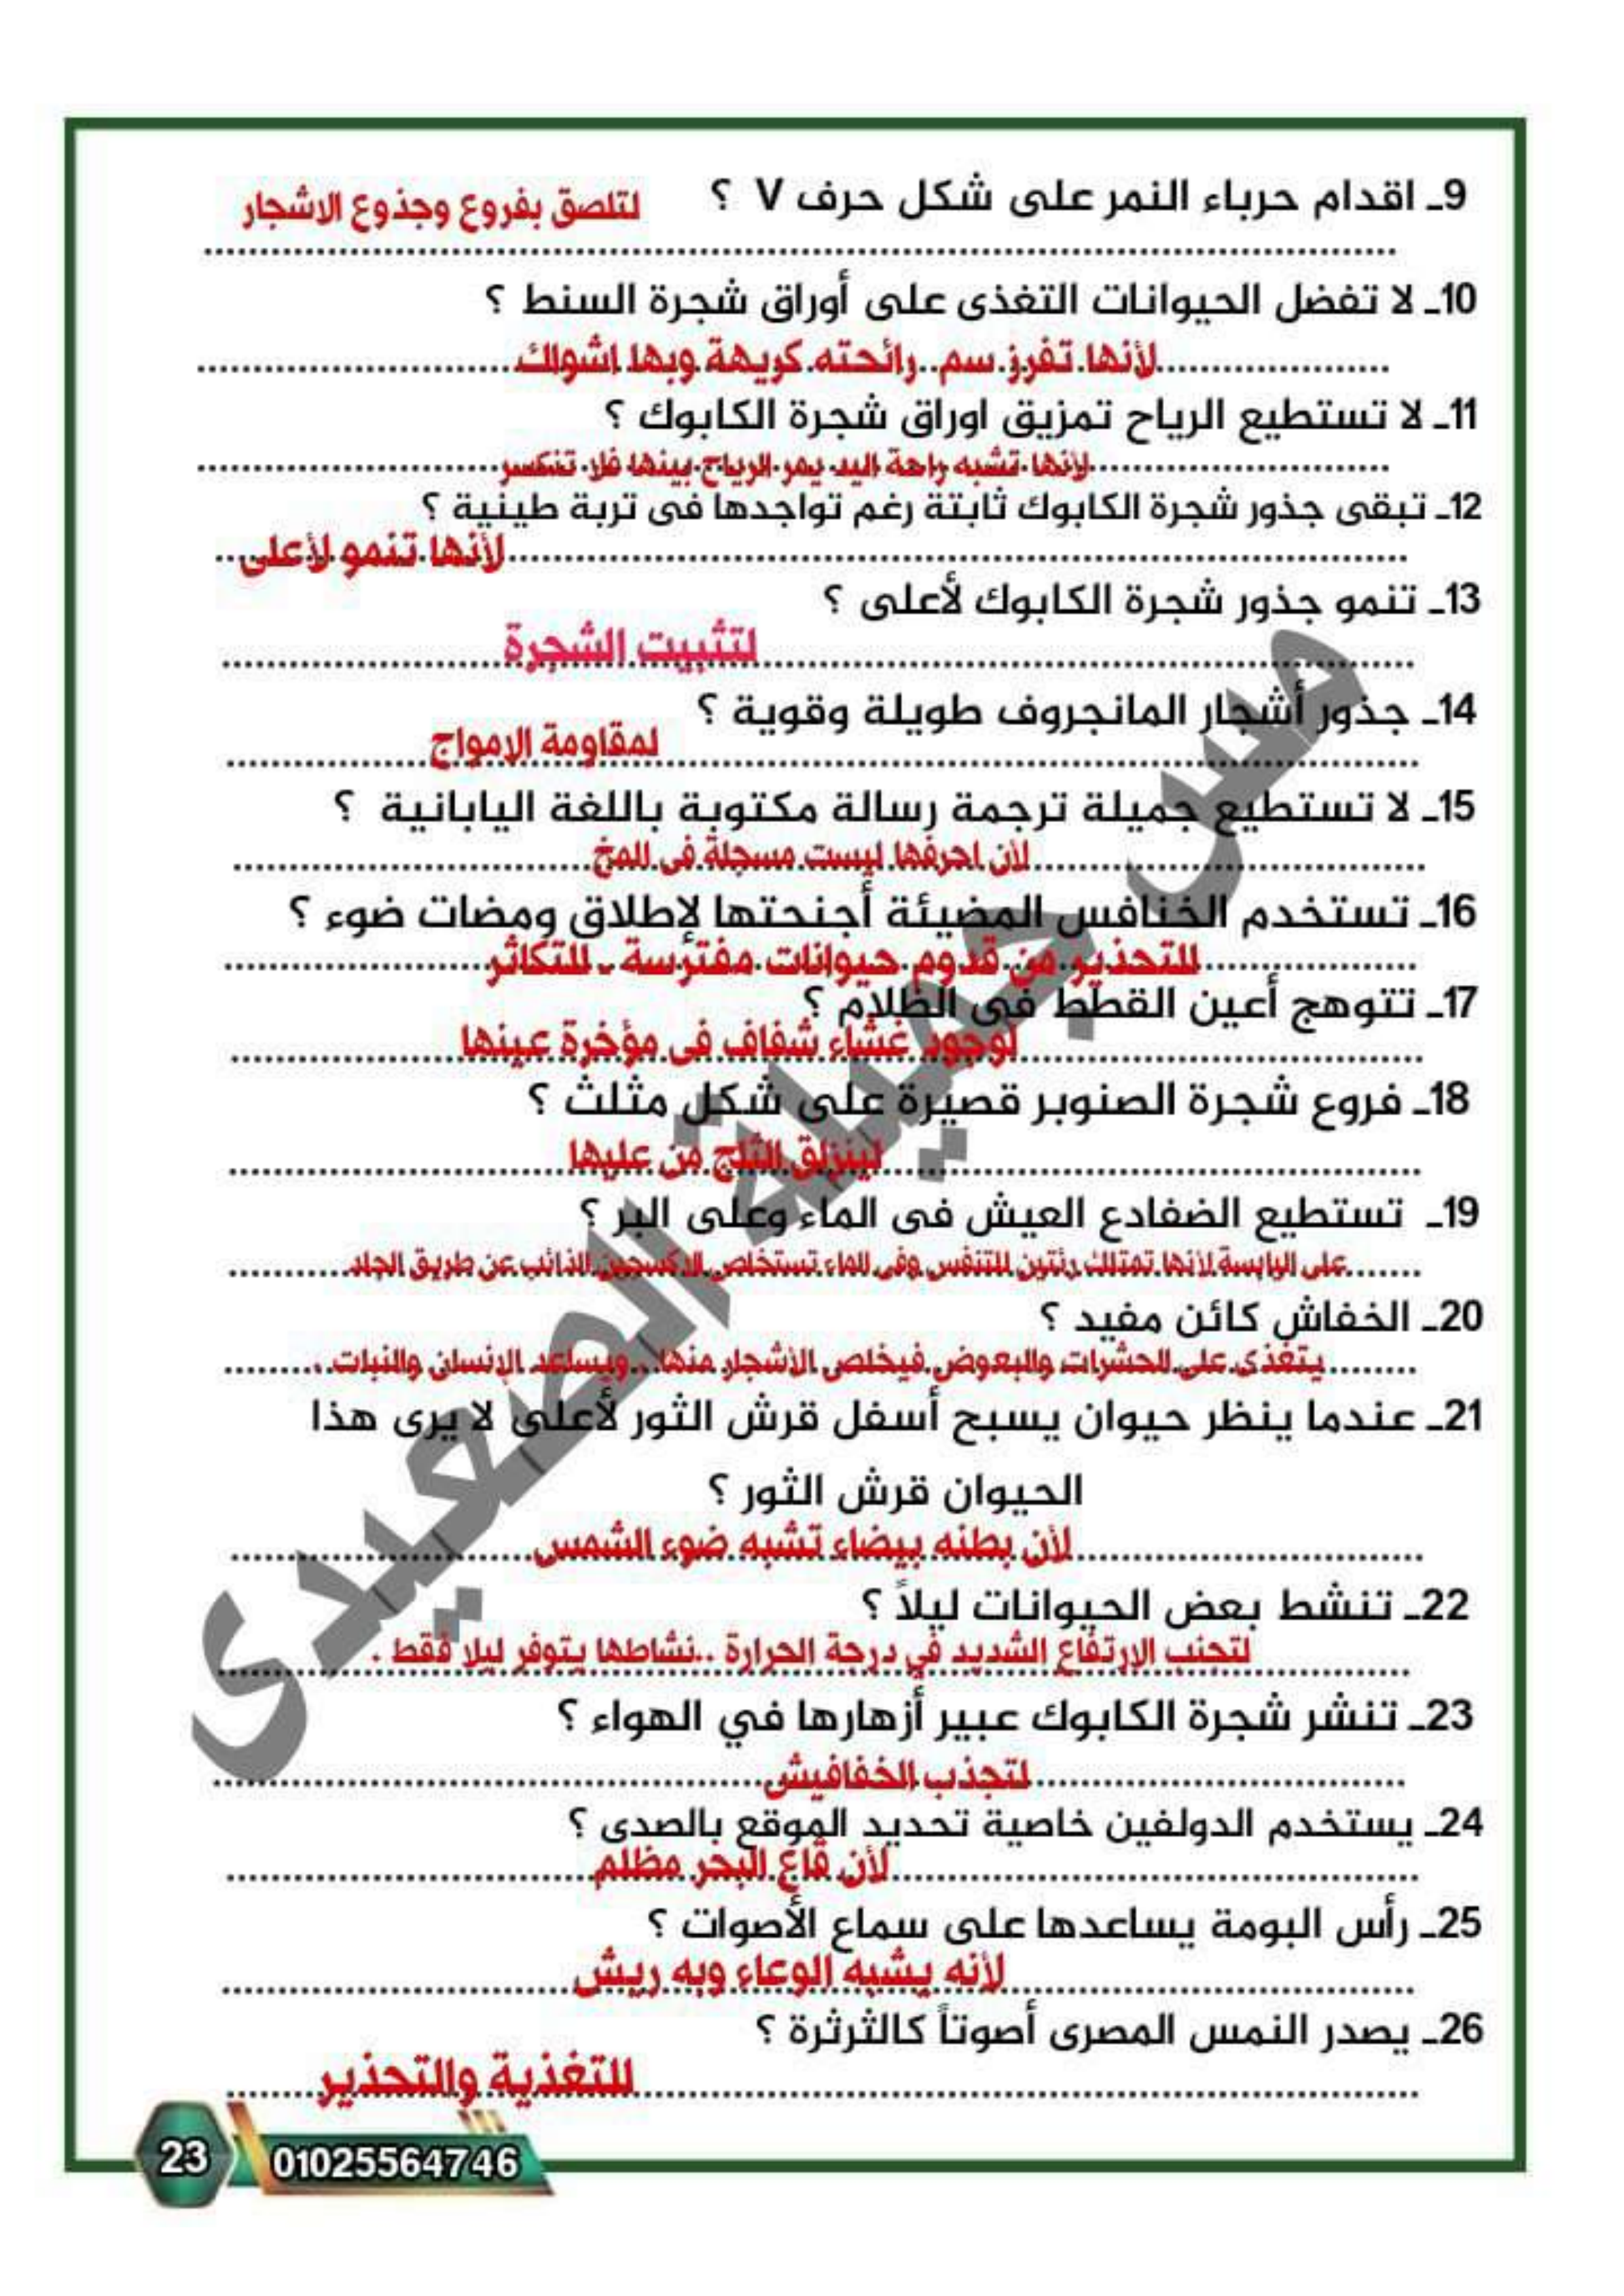 9ـ اقدام حرباء النمر على شكل حرف V ؟ لتلصق بفروع وجذوع الاشجار
10ـ لا تفضل الحيوانات التغذى على أوراق شجرة السنط ؟
لأنها تفرز سم رائحته كريهة وبها اشواك
11ـ لا تستطيع الرياح تمزيق اوراق شجرة الكابوك ؟
لأنها تشبه راحة اليد يمر الرياح بينها فلا تنكسر
12ـ تبقى جذور شجرة الكابوك ثابتة رغم تواجدها فى تربة طينية ؟
لأنها تنمو لأعلى
13ـ تنمو جذور شجرة الكابوك لأعلى ؟
لتثبيت الشجرة
14ـ جذور أشجار المانجروف طويلة وقوية ؟
لمقاومة الامواج
15ـ لا تستطيع جميلة ترجمة رسالة مكتوبة باللغة اليابانية ؟
لأن احرفها ليست مسجلة فى المخ
16ـ تستخدم الخنافس المضيئة أجنحتها لإطلاق ومضات ضوء ؟
للتحذير من قدوم حيوانات مفترسة ـ للتكاثر
17ـ تتوهج أعين القطط فى الظلام ؟
لوجود غشاء شفاف فى مؤخرة عينها
18ـ فروع شجرة الصنوبر قصيرة على شكل مثلث ؟
لينزلق الثلج من عليها
19ـ تستطيع الضفادع العيش فى الماء وعلى البر ؟
على اليابسة لأنها تمتلك رئتين للتنفس وفى الماء تستخلص الاكسجين الذائب عن طريق الجلد
20ـ الخفاش كائن مفيد ؟
يتغذى على الحشرات والبعوض فيخلص الأشجار منها . ويساعد الإنسان والنبات .
21ـ عندما ينظر حيوان يسبح أسفل قرش الثور لأعلى لا يرى هذا
الحيوان قرش الثور ؟
لأن بطنه بيضاء تشبه ضوء الشمس
22ـ تنشط بعض الحيوانات ليلاً ؟
لتجنب الارتفاع الشديد في درجة الحرارة ..نشاطها يتوفر ليلا فقط .
23ـ تنشر شجرة الكابوك عبير أزهارها في الهواء ؟
لتجذب الخفافيش
24ـ يستخدم الدولفين خاصية تحديد الموقع بالصدى ؟
لأن قاع البحر مظلم
25ـ رأس البومة يساعدها على سماع الأصوات ؟
لأنه يشبه الوعاء وبه ريش
26ـ يصدر النمس المصرى أصوتاً كالثرثرة ؟
للتغذية والتحذير
مس جميلة الصعيدى
23 01025564746